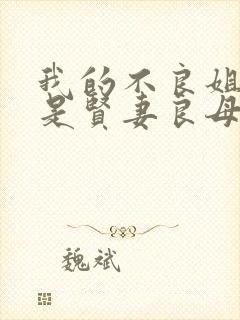 我的不良姐
是賢妻良母
魏斌